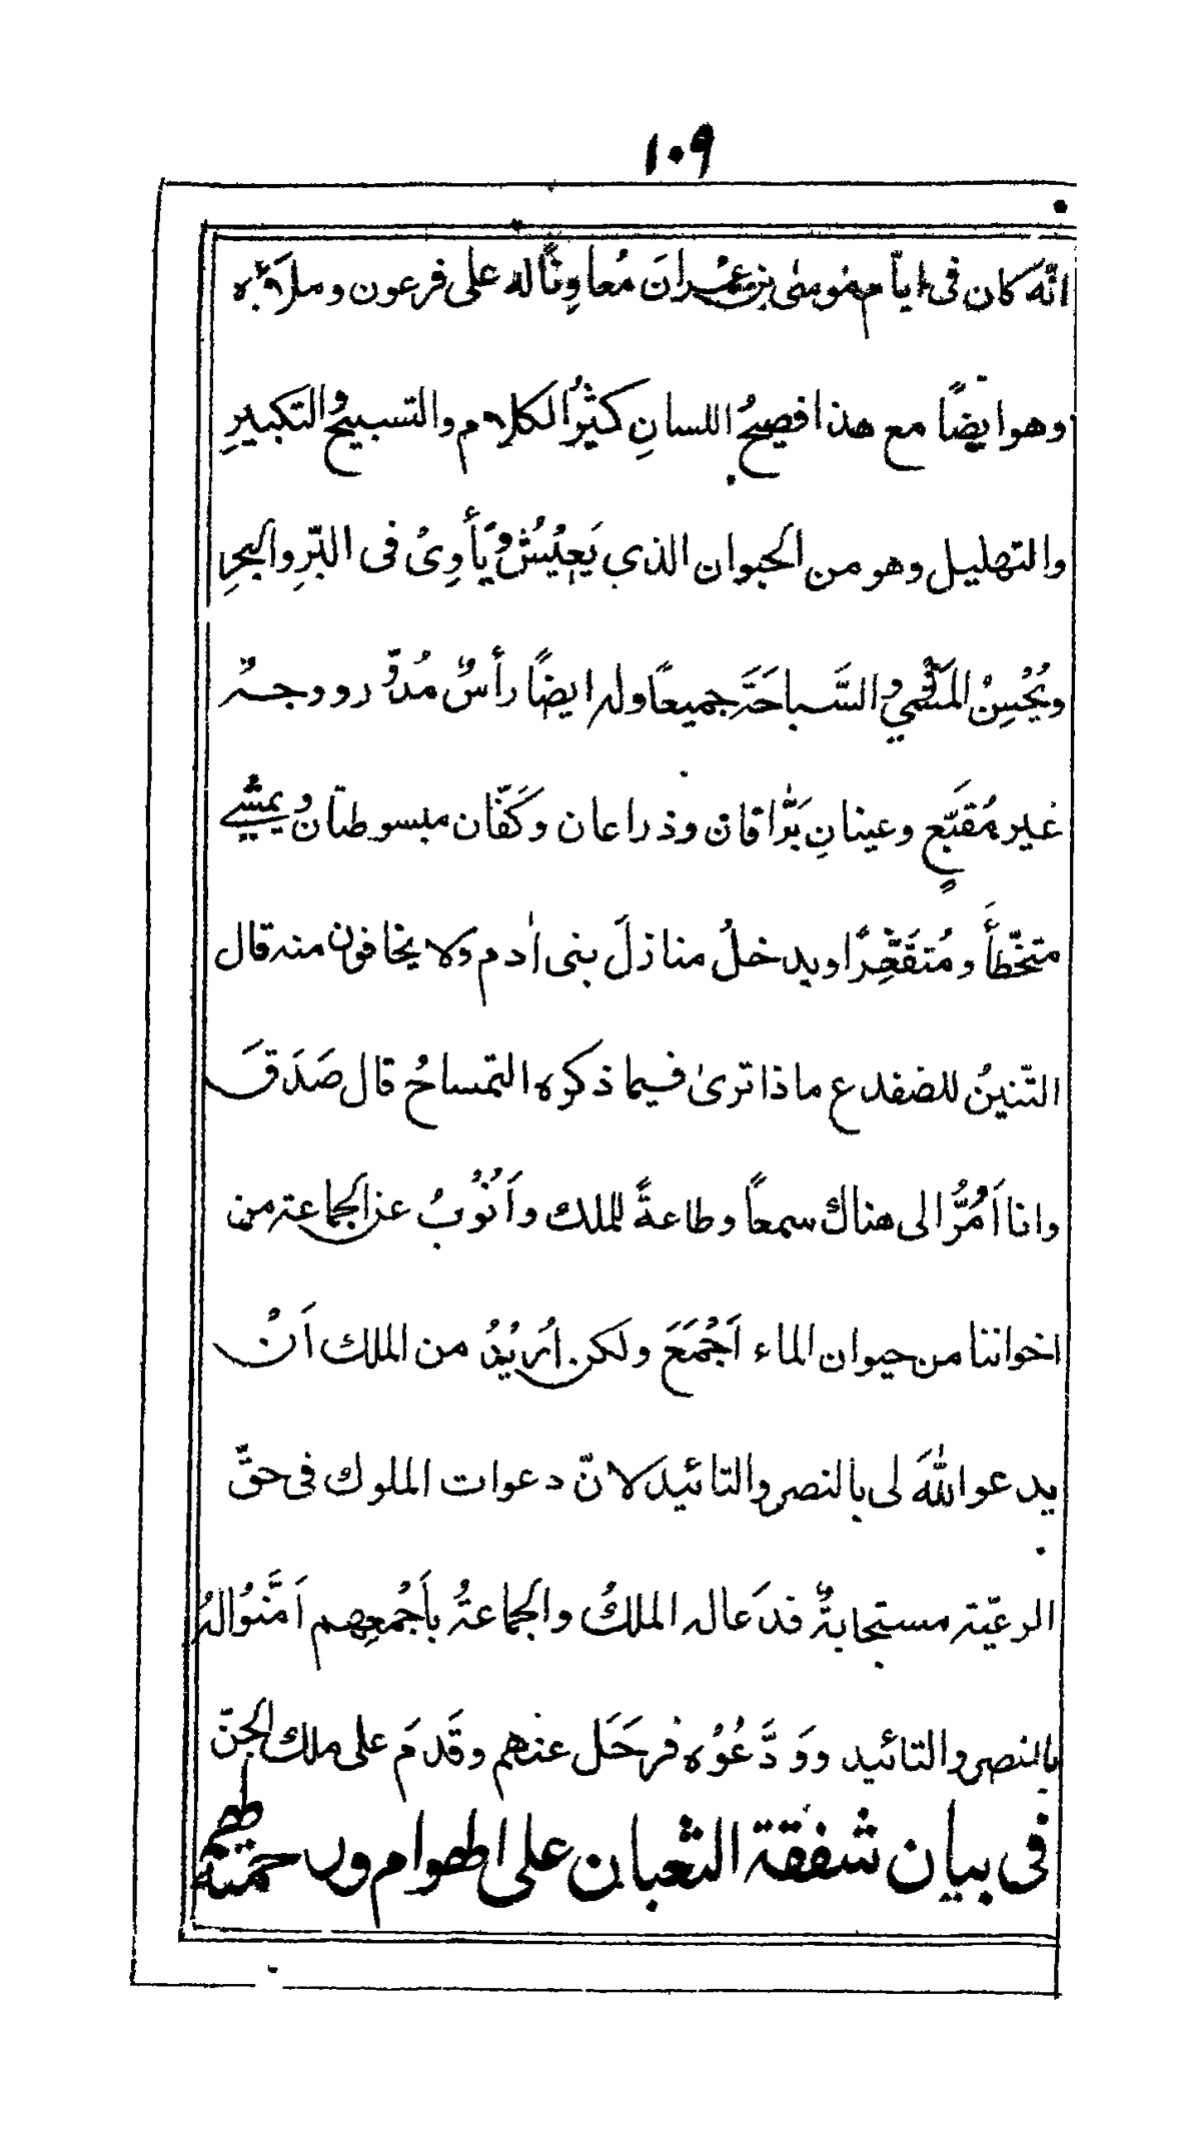 ١٠٩
انّه كان فى ايّام موسى بن عمران مُعاوِنًا له على فرعون وملَائِه
وهو ايضًا مع هذا فصيحُ اللسانِ كثيْرُ الكلام والتسبيحُ والتكبيرِ
والتهليل وهو من الحيوان الذي يَعِيْشُ وُيَأوِىْ فى البّرِ والبحرِ
ويُحْسِنُ المَشْيَ والسَّباحَتَه جميعًا وله ايضًا رأسٌ مُدوَّر ووجهٌ
غير مُقبَّعٍ وعينانِ بَرّاقان وذراعان وكَفّان مبسوطتان ويمشي
متخّطأً ومُتقَفِّزًا ويدخلُ منازلَ بنى اٰدم ولا يخافون منه قال
التّنينُ للضفدع ماذا ترىٰ فيما ذكره التمساحُ قال صَدَقَ
وانا اَمُرُّ الى هناك سمعاً وطاعةً للملك واَنُوْبُ عن الجماعته من
اخواننا من حيوان الماء اَجْمَعَ ولكن اُرِيْدُ من الملك اَنْ
يدعو اللّٰهَ لى بالنصر والتائيد لانّ دعوات الملوك فى حقّ
الرعيّة مستجابةٌ فدَعا له الملكُ والجماعةُ بأَجْمعِهم اَمَّنوُا لهُ
بالنصر والتائيد ووَدَّعُوْه فرحَل عنهم وقَدمَ على ملك الجنّ
فى بيان شفقة الثعبان على الهوام ورحمته لهم